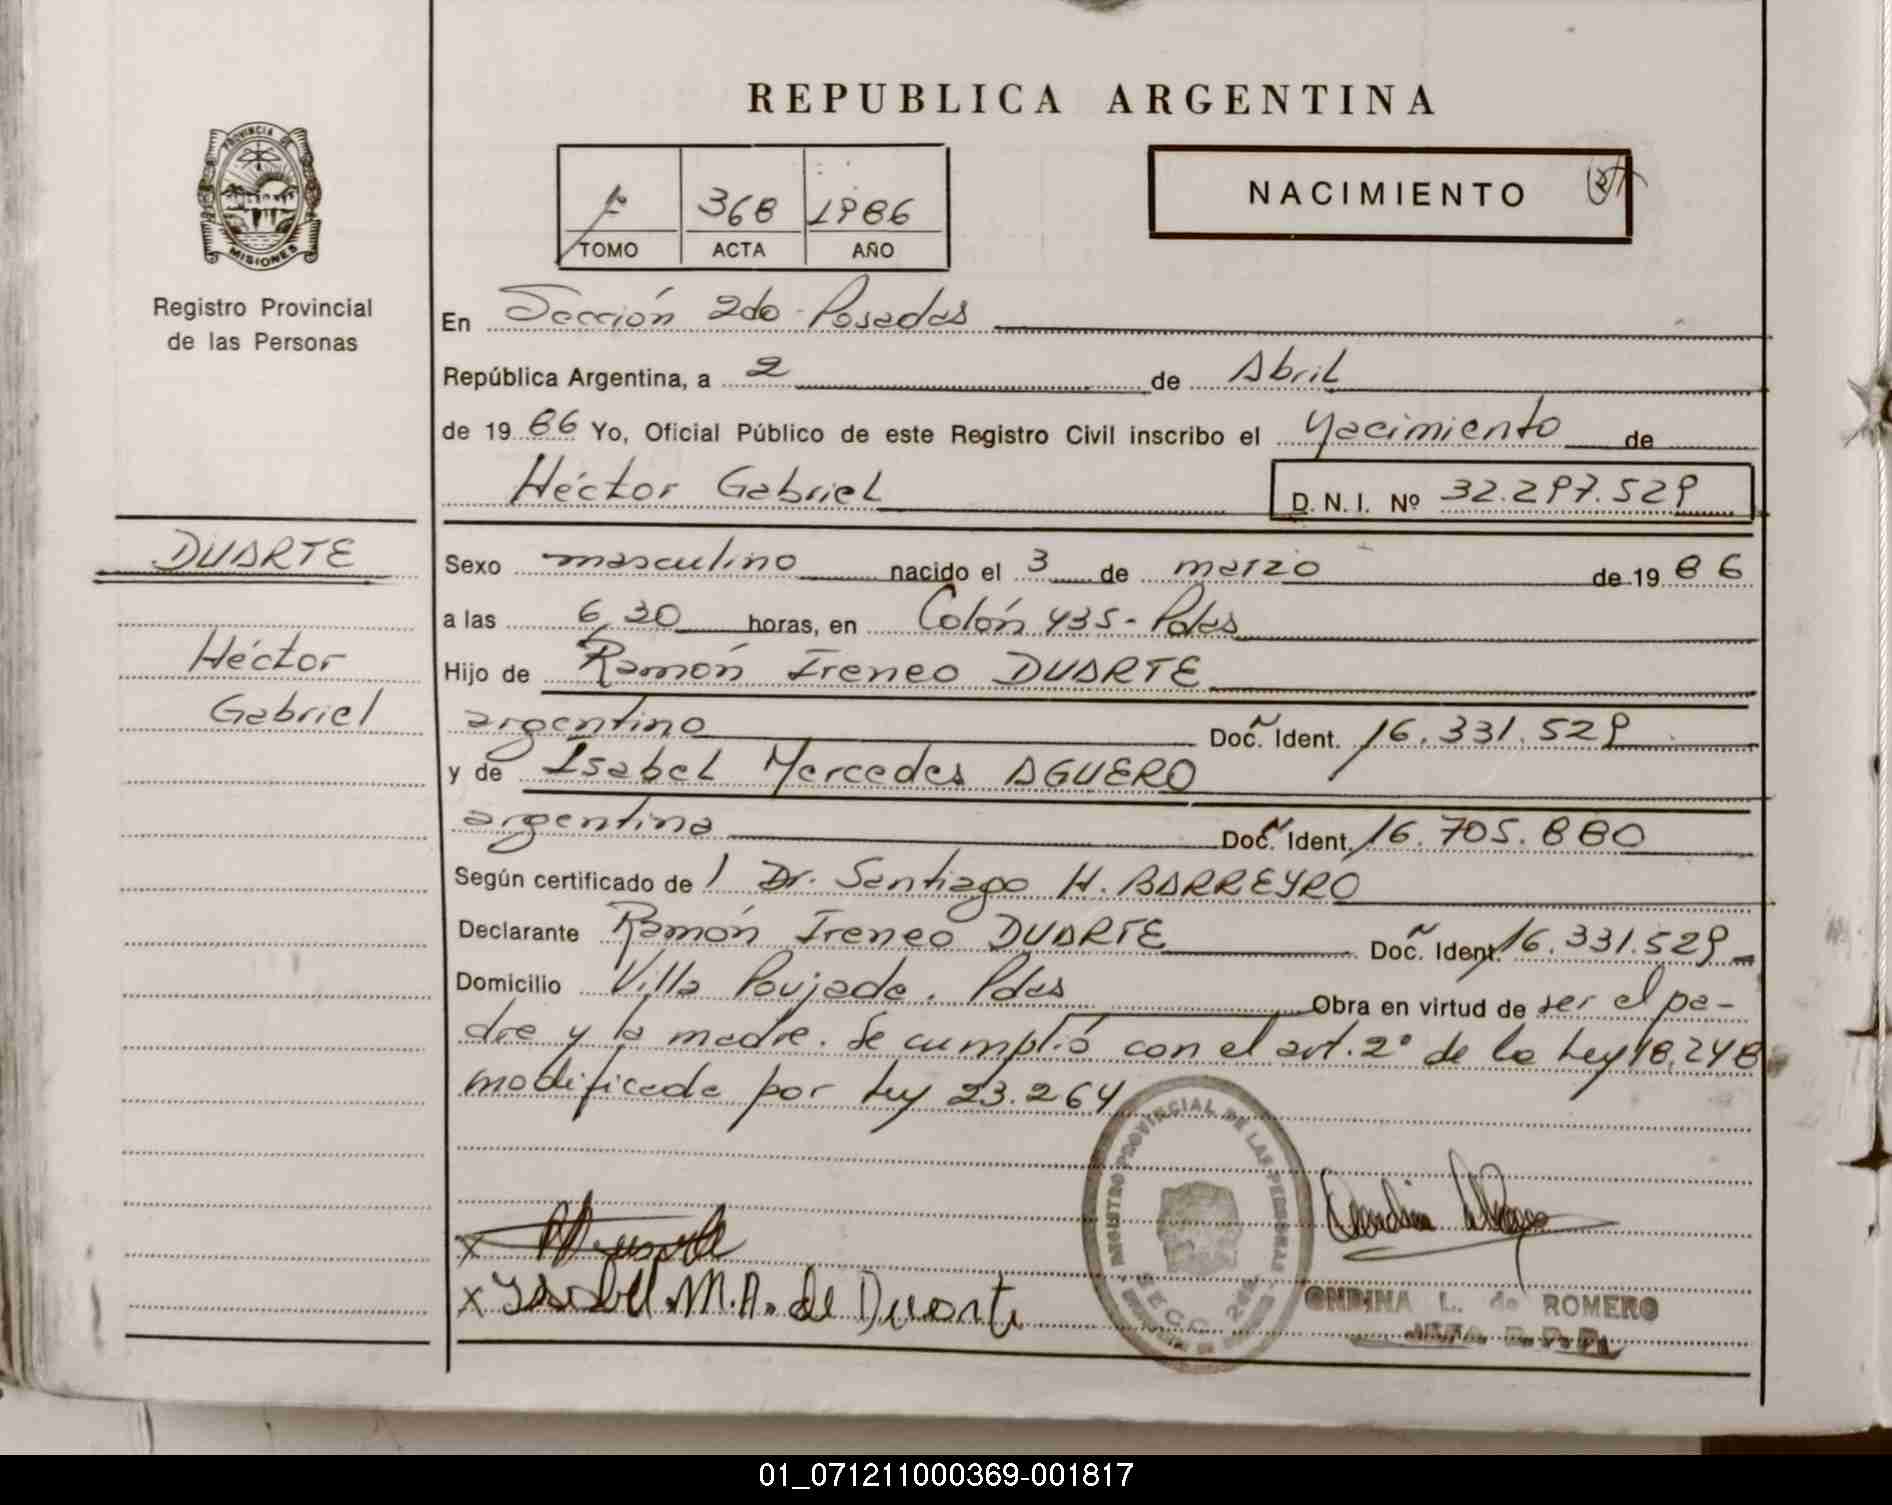 REPUBLICA ARGENTINA
PROVINCIA DE
MISIONES
Registro Provincial
de las Personas
1º 368 1986
TOMO ACTA AÑO
NACIMIENTO
En Sección 2da Posadas
República Argentina, a 2 de Abril
de 1986 Yo, Oficial Público de este Registro Civil inscribo el Nacimiento de
Héctor Gabriel D. N. I. Nº 32.297.529
DUARTE
Héctor
Gabriel
Sexo masculino nacido el 3 de marzo de 1986
a las 6,30 horas, en Colón 435 - Pdas
Hijo de Ramón Ireneo DUARTE
argentino Doc. Ident. 16.331.529
y de Isabel Mercedes AGUERO
argentina Doc. Ident. 16.705.880
Según certificado de l Dr. Santiago H. BARREYRO
Declarante Ramón Ireneo DUARTE Doc. Ident. 16.331.529
Domicilio Villa Poujade. Pdas Obra en virtud de ser el pa-
dre y la madre. Se cumplió con el art. 2º de la Ley 18.248
modificada por Ley 23.264
REGISTRO PROVINCIAL DE LAS PERSONAS
SECC. 2da
x
x Isabel M. A. de Duarte
ONDINA L. de ROMERO
JEFA R.P.P.
01_071211000369-001817